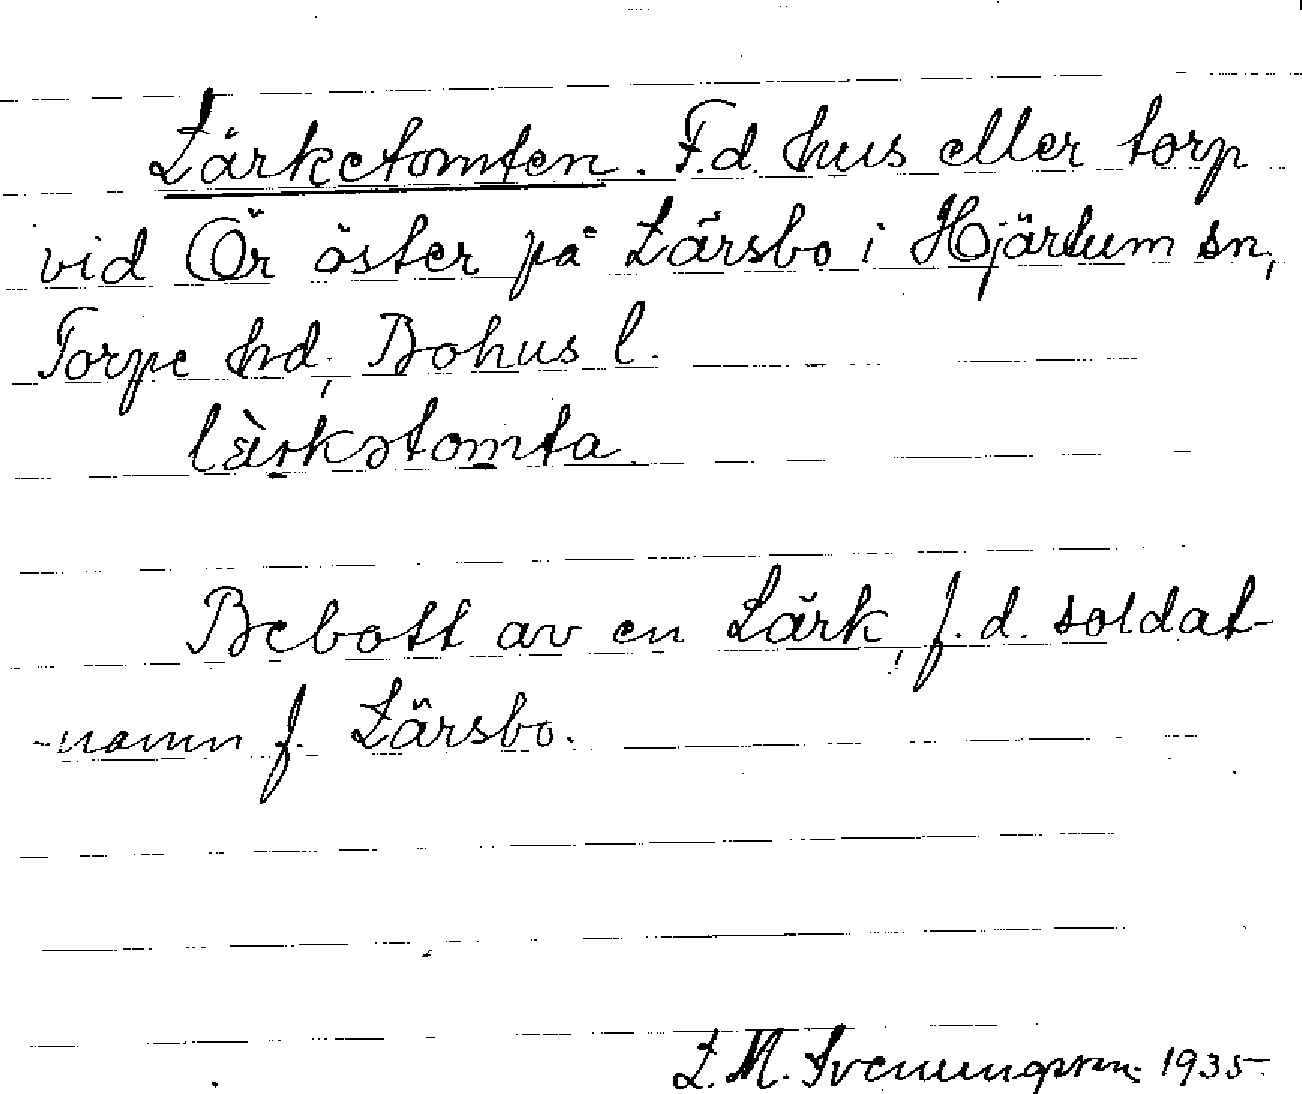 Lärketomten. F.d. hus eller torp
vid Ör öster på Lärsbo i Hjärtum sn,
Torpe hd, Bohus l.
lärkətomta.
Bebott av en Lärk, f.d. soldat-
-namn f. Lärsbo.
L.M. Svenungsson 1935.